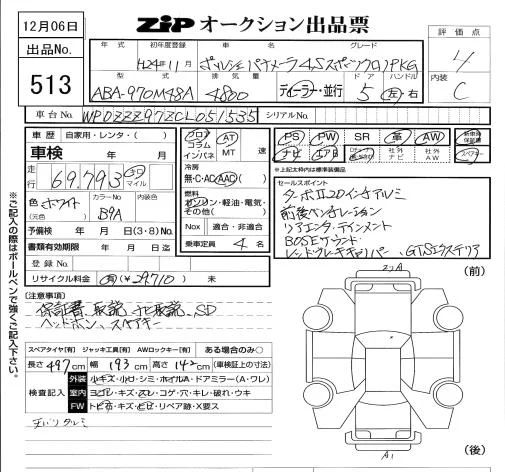 12月06日
ZIP オークション出品票
評価点
4
出品No.
513
年式 初年度登録 車名 グレード
H24年11月 ポルシェ パナメーラ4S スポーツクロノPKG
型式 排気量 ドア ハンドル
ABA-970M48A 4800 ディーラー・並行 5 左・右
内装
C
車台No. WP0ZZZ97ZCL051535 シリアルNo.
車歴 自家用・レンタ・( )
車検 年 月
走行 69,793 キロ マイル
色 ホワイト (元色) カラーNo B9A 内装色
予備検 年 月 日(3・8)No.
書類有効期限 年 月 日迄
登録No.
リサイクル料金 有(¥29710) 未
フロア コラム インパネ AT MT 速
冷房 無・C・AC・AAC
燃料 ガソリン・軽油・電気・その他( )
Nox 適合・非適合
乗車定員 4 名
PS PW SR 革 AW 新車時保証書
ナビ エアB 社外ナビ 社外AW スペアキー
※上記太枠内は標準装備品
セールスポイント
ターボⅡ20インチアルミ
前後ベンチレーション
リアエンターテインメント
BOSEサウンド
レッドブレーキキャリパー、GTSエクステリア
※ご記入の際はボールペンで強くご記入下さい。
[注意事項]
保証書、取説、ナビ取説、SD
ヘッドホン、スペアキー
スペアタイヤ[有] ジャッキ工具[有] AWロックキー[有] ある場合のみ○
長さ 497cm 幅 193cm 高さ 142cm (車検証上の寸法)
検査記入
外装 小キズ・小凹・シミ・ホイルA・ドアミラー(A・ワレ)
室内 ヨゴレ・キズ・スレ・コゲ・穴・キレ・破れ・ウキ
FW トビ石・キズ・ヒビ・リペア跡・X要ス
天バリタルミ
(前)
(後)
A1